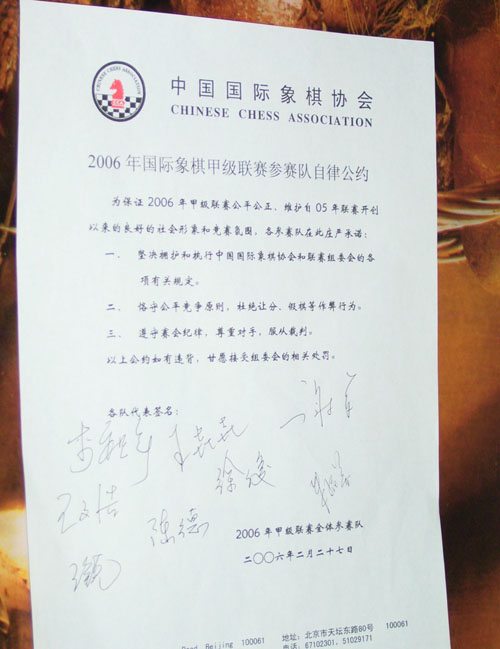 CHINESE CHESS ASSOCIATION
中国国际象棋协会
CHINESE CHESS ASSOCIATION
2006 年国际象棋甲级联赛参赛队自律公约
为保证 2006 年甲级联赛公平公正，维护自 05 年联赛开创
以来的良好的社会形象和竞赛氛围，各参赛队在此庄严承诺：
一、 坚决拥护和执行中国国际象棋协会和联赛组委会的各
项有关规定。
二、 恪守公平竞争原则，杜绝让分、假棋等作弊行为。
三、 遵守赛会纪律，尊重对手，服从裁判。
以上公约如有违背，甘愿接受组委会的相关处罚。
各队代表签名：
谢军
徐俊
陈德
2006 年甲级联赛全体参赛队
二〇〇六年二月二十七日
Road Beijing 100061
地址：北京市天坛东路80号 100061
电话：67102301、51029171